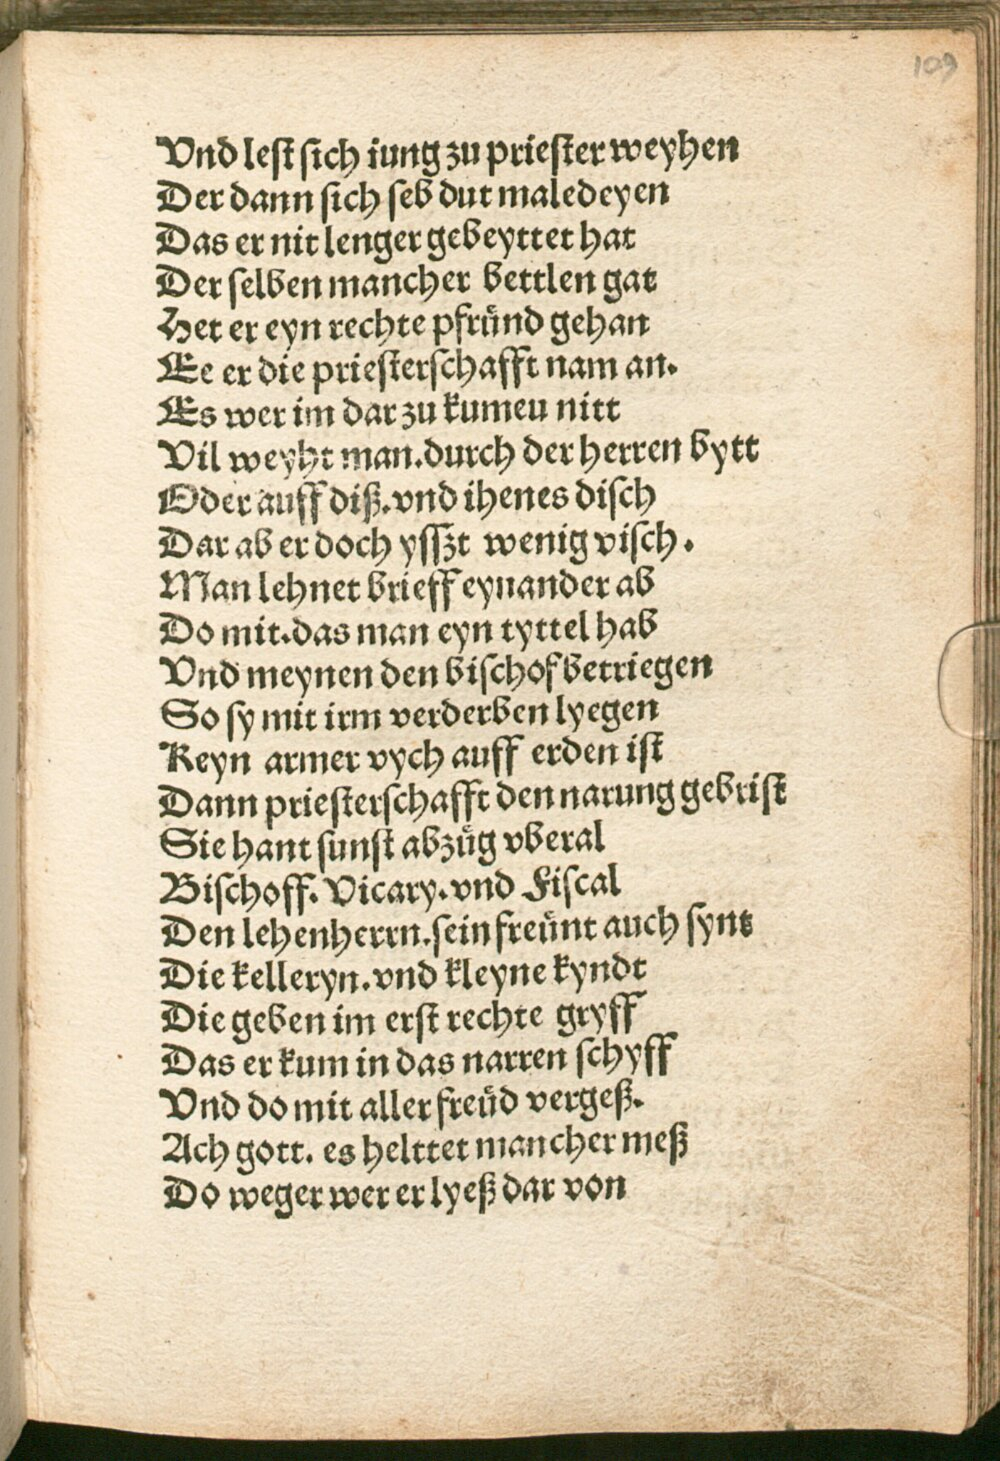 109
Vnd leſt ſich iung zu prieſter weyhen
Der dann ſich ſeb dut maledeyen
Das er nit lenger gebeyttet hat
Der ſelben mancher bettlen gat
Het er eyn rechte pfruͤnd gehan
Ee er die prieſterſchafft nam an.
Es wer im dar zu kumeu nitt
Vil weyht man.durch der herren bytt
Oder auff diß.vnd ihenes diſch
Dar ab er doch yſſzt wenig viſch.
Man lehnet brieff eynander ab
Do mit.das man eyn tyttel hab
Vnd meynen den biſchof betriegen
So ſy mit irm verderben lyegen
Keyn armer vych auff erden iſt
Dann prieſterſchafft den narung gebriſt
Sie hant ſunſt abzuͤg vberal
Biſchoff. Vicary.vnd Fiſcal
Den lehenherrn.ſein freuͤnt auch ſynt
Die kelleryn.vnd kleyne kyndt
Die geben im erſt rechte gryff
Das er kum in das narren ſchyff
Vnd do mit aller freuͤd vergeß.
Ach gott. es helttet mancher meß
Do weger wer er lyeß dar von